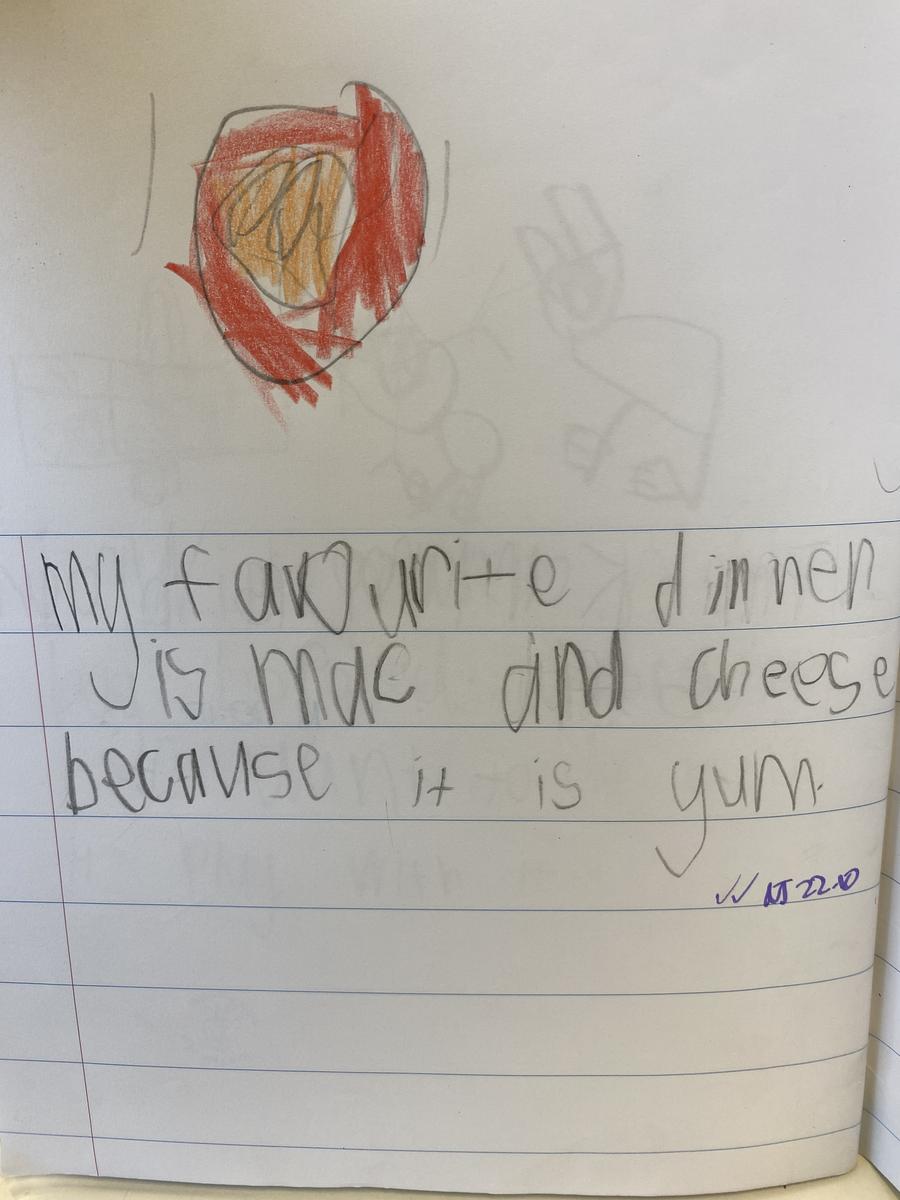 my favourite dinner
is mac and cheese
because it is yum.
22.10